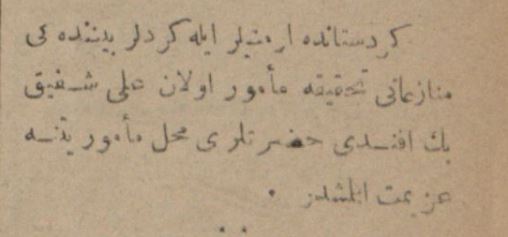 كردستانده ارمنيلر ايله كردلر بيننده كى
منازعاتى تحقيقه مأمور اولان على شفيق
بك افندى حضرتلرى محل مأموريتنه
عزيمت ايلمشدر .